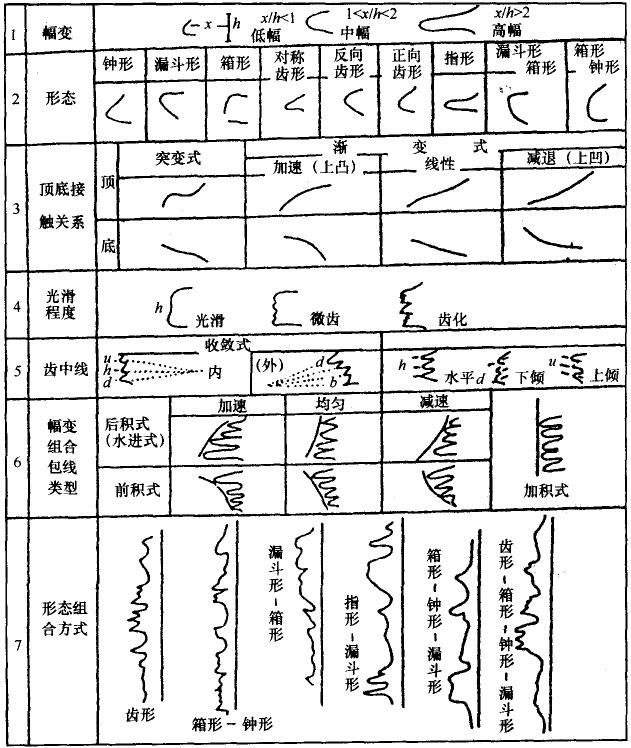 1 幅变 x h x/h<1 低幅 1<x/h<2 中幅 x/h>2 高幅
2 形态 钟形 漏斗形 箱形 对称齿形 反向齿形 正向齿形 指形 漏斗形箱形 箱形钟形
3 顶底接触关系
突变式 渐变式
加速（上凸） 线性 减退（上凹）
顶
底
4 光滑程度 h 光滑 微齿 齿化
5 齿中线 收敛式
u h d 内 (外) d b h 水平 d 下倾 u 上倾
6 幅变组合包线类型
加速 均匀 减速
后积式（水进式）
前积式 加积式
7 形态组合方式
齿形
箱形－钟形
漏斗形－箱形
指形－漏斗形
箱形－钟形－漏斗形
齿形－箱形－钟形－漏斗形